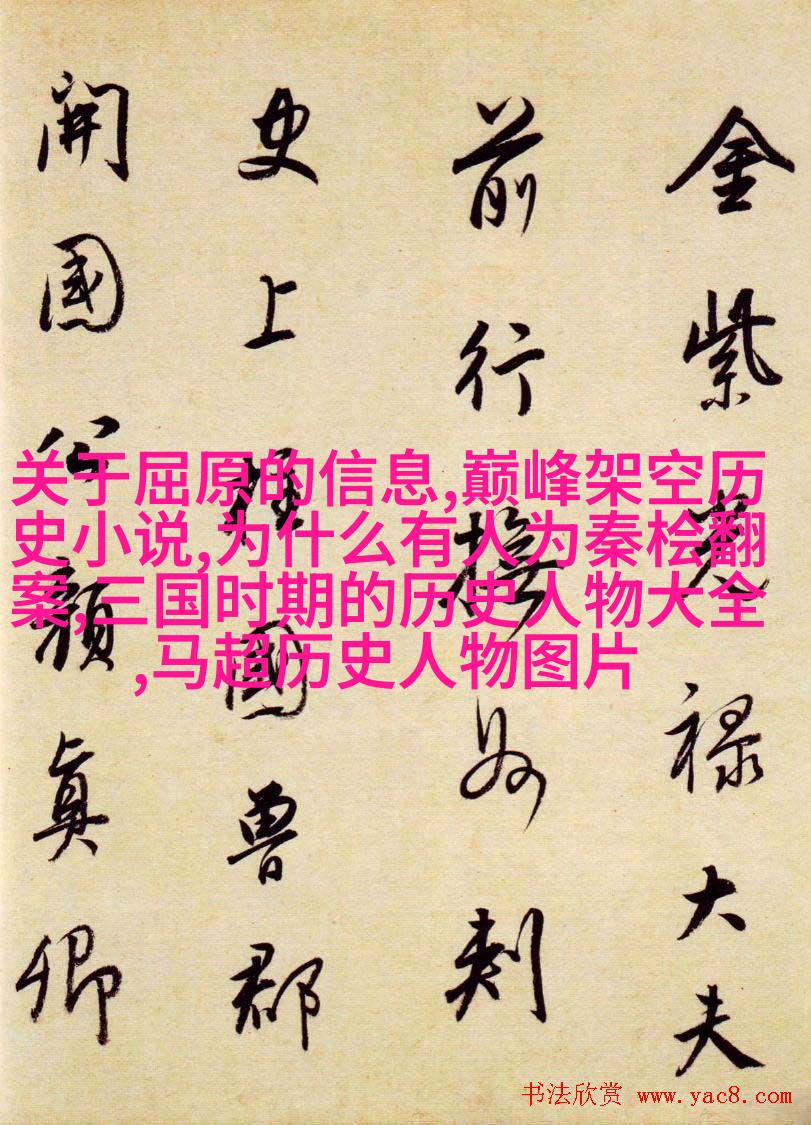 金紫光禄大夫
前行撫州刺
史上柱國魯郡
開國公顏眞卿
关于屈原的信息,巅峰架空历
史小说,为什么有人为秦桧翻
案,三国时期的历史人物大全
,马超历史人物图片
书法欣赏 www.yac8.com